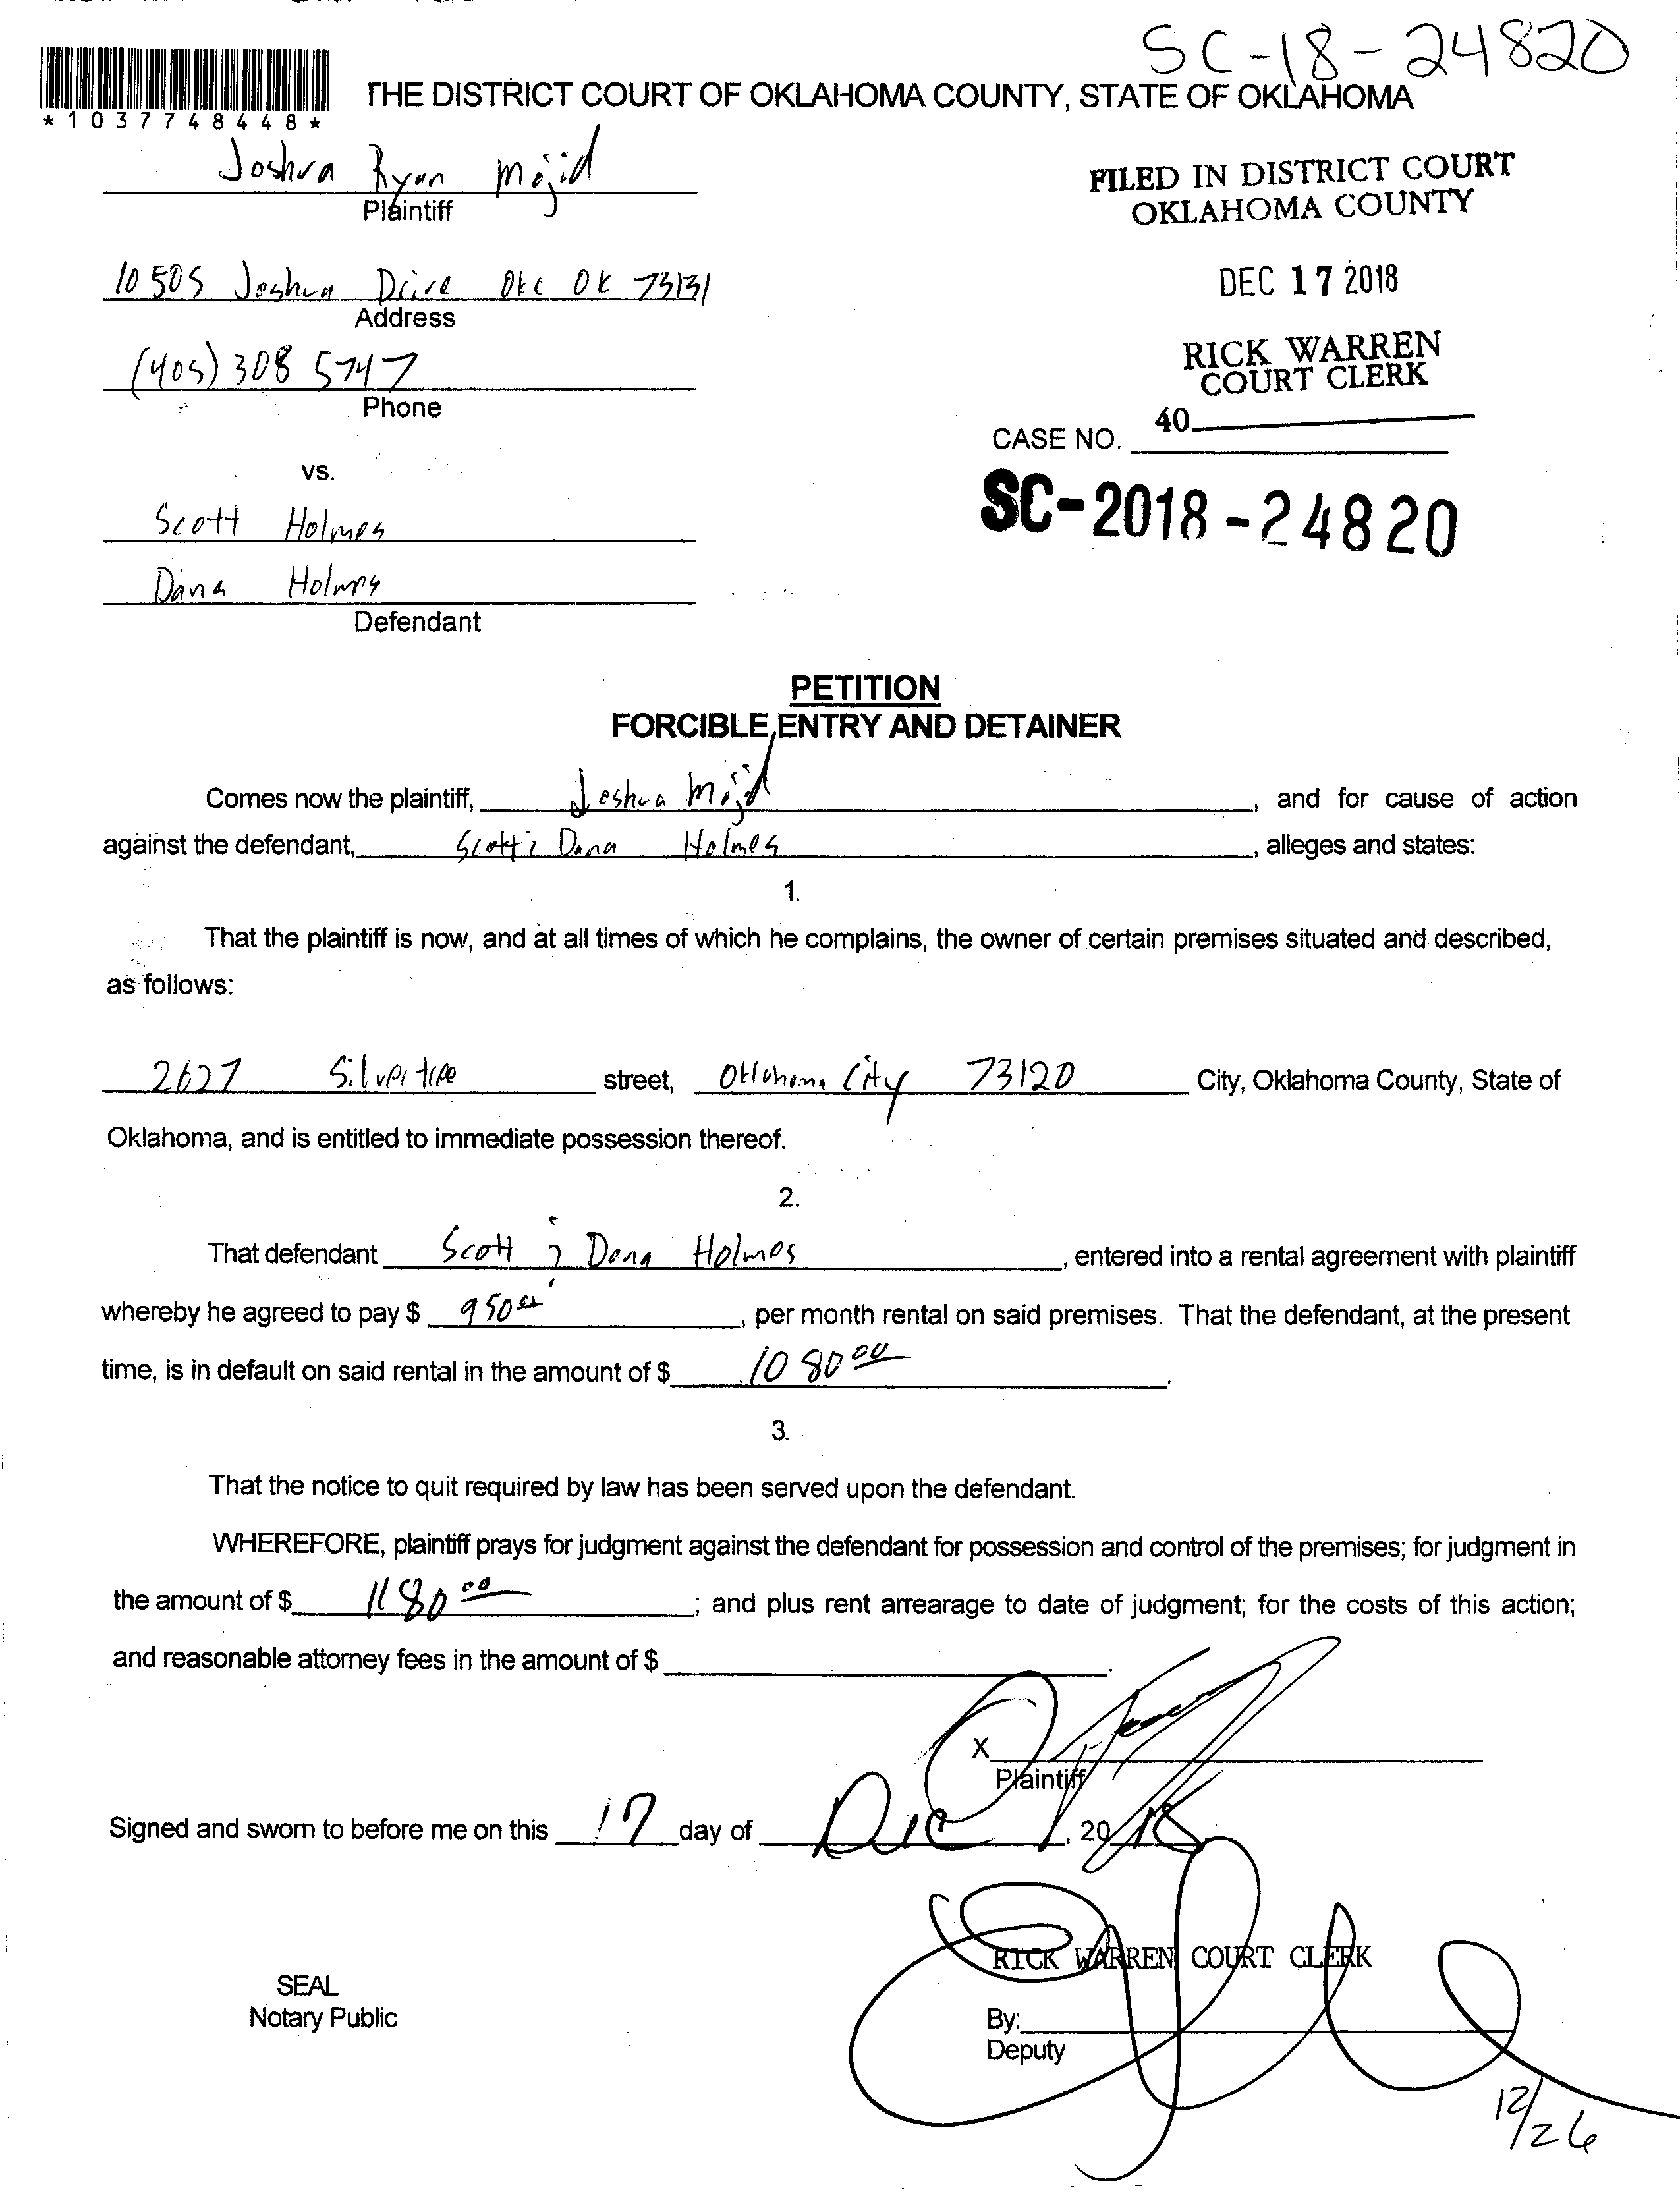 SC-18-24820
*1037748448*
THE DISTRICT COURT OF OKLAHOMA COUNTY, STATE OF OKLAHOMA
Joshua Ryan Mojid
Plaintiff
FILED IN DISTRICT COURT
OKLAHOMA COUNTY
10505 Joshua Drive OKC OK 73131
Address
DEC 17 2018
(405) 308 5747
Phone
RICK WARREN
COURT CLERK
40
CASE NO.
SC-2018-24820
vs.
Scott Holmes
Dana Holmes
Defendant
PETITION
FORCIBLE ENTRY AND DETAINER
Comes now the plaintiff, Joshua Mojid, and for cause of action
against the defendant, Scott & Dana Holmes, alleges and states:
1.
That the plaintiff is now, and at all times of which he complains, the owner of certain premises situated and described,
as follows:
2627 Silvertree street, Oklahoma City 73120 City, Oklahoma County, State of
Oklahoma, and is entitled to immediate possession thereof.
2.
That defendant Scott & Dana Holmes, entered into a rental agreement with plaintiff
whereby he agreed to pay $ 950.00, per month rental on said premises. That the defendant, at the present
time, is in default on said rental in the amount of $ 1080.00.
3.
That the notice to quit required by law has been served upon the defendant.
WHEREFORE, plaintiff prays for judgment against the defendant for possession and control of the premises; for judgment in
the amount of $ 1180.00; and plus rent arrearage to date of judgment; for the costs of this action;
and reasonable attorney fees in the amount of $
X
Plaintiff
Signed and sworn to before me on this 17 day of Dec, 20 18
RICK WARREN COURT CLERK
SEAL
Notary Public
By:
Deputy
12/26